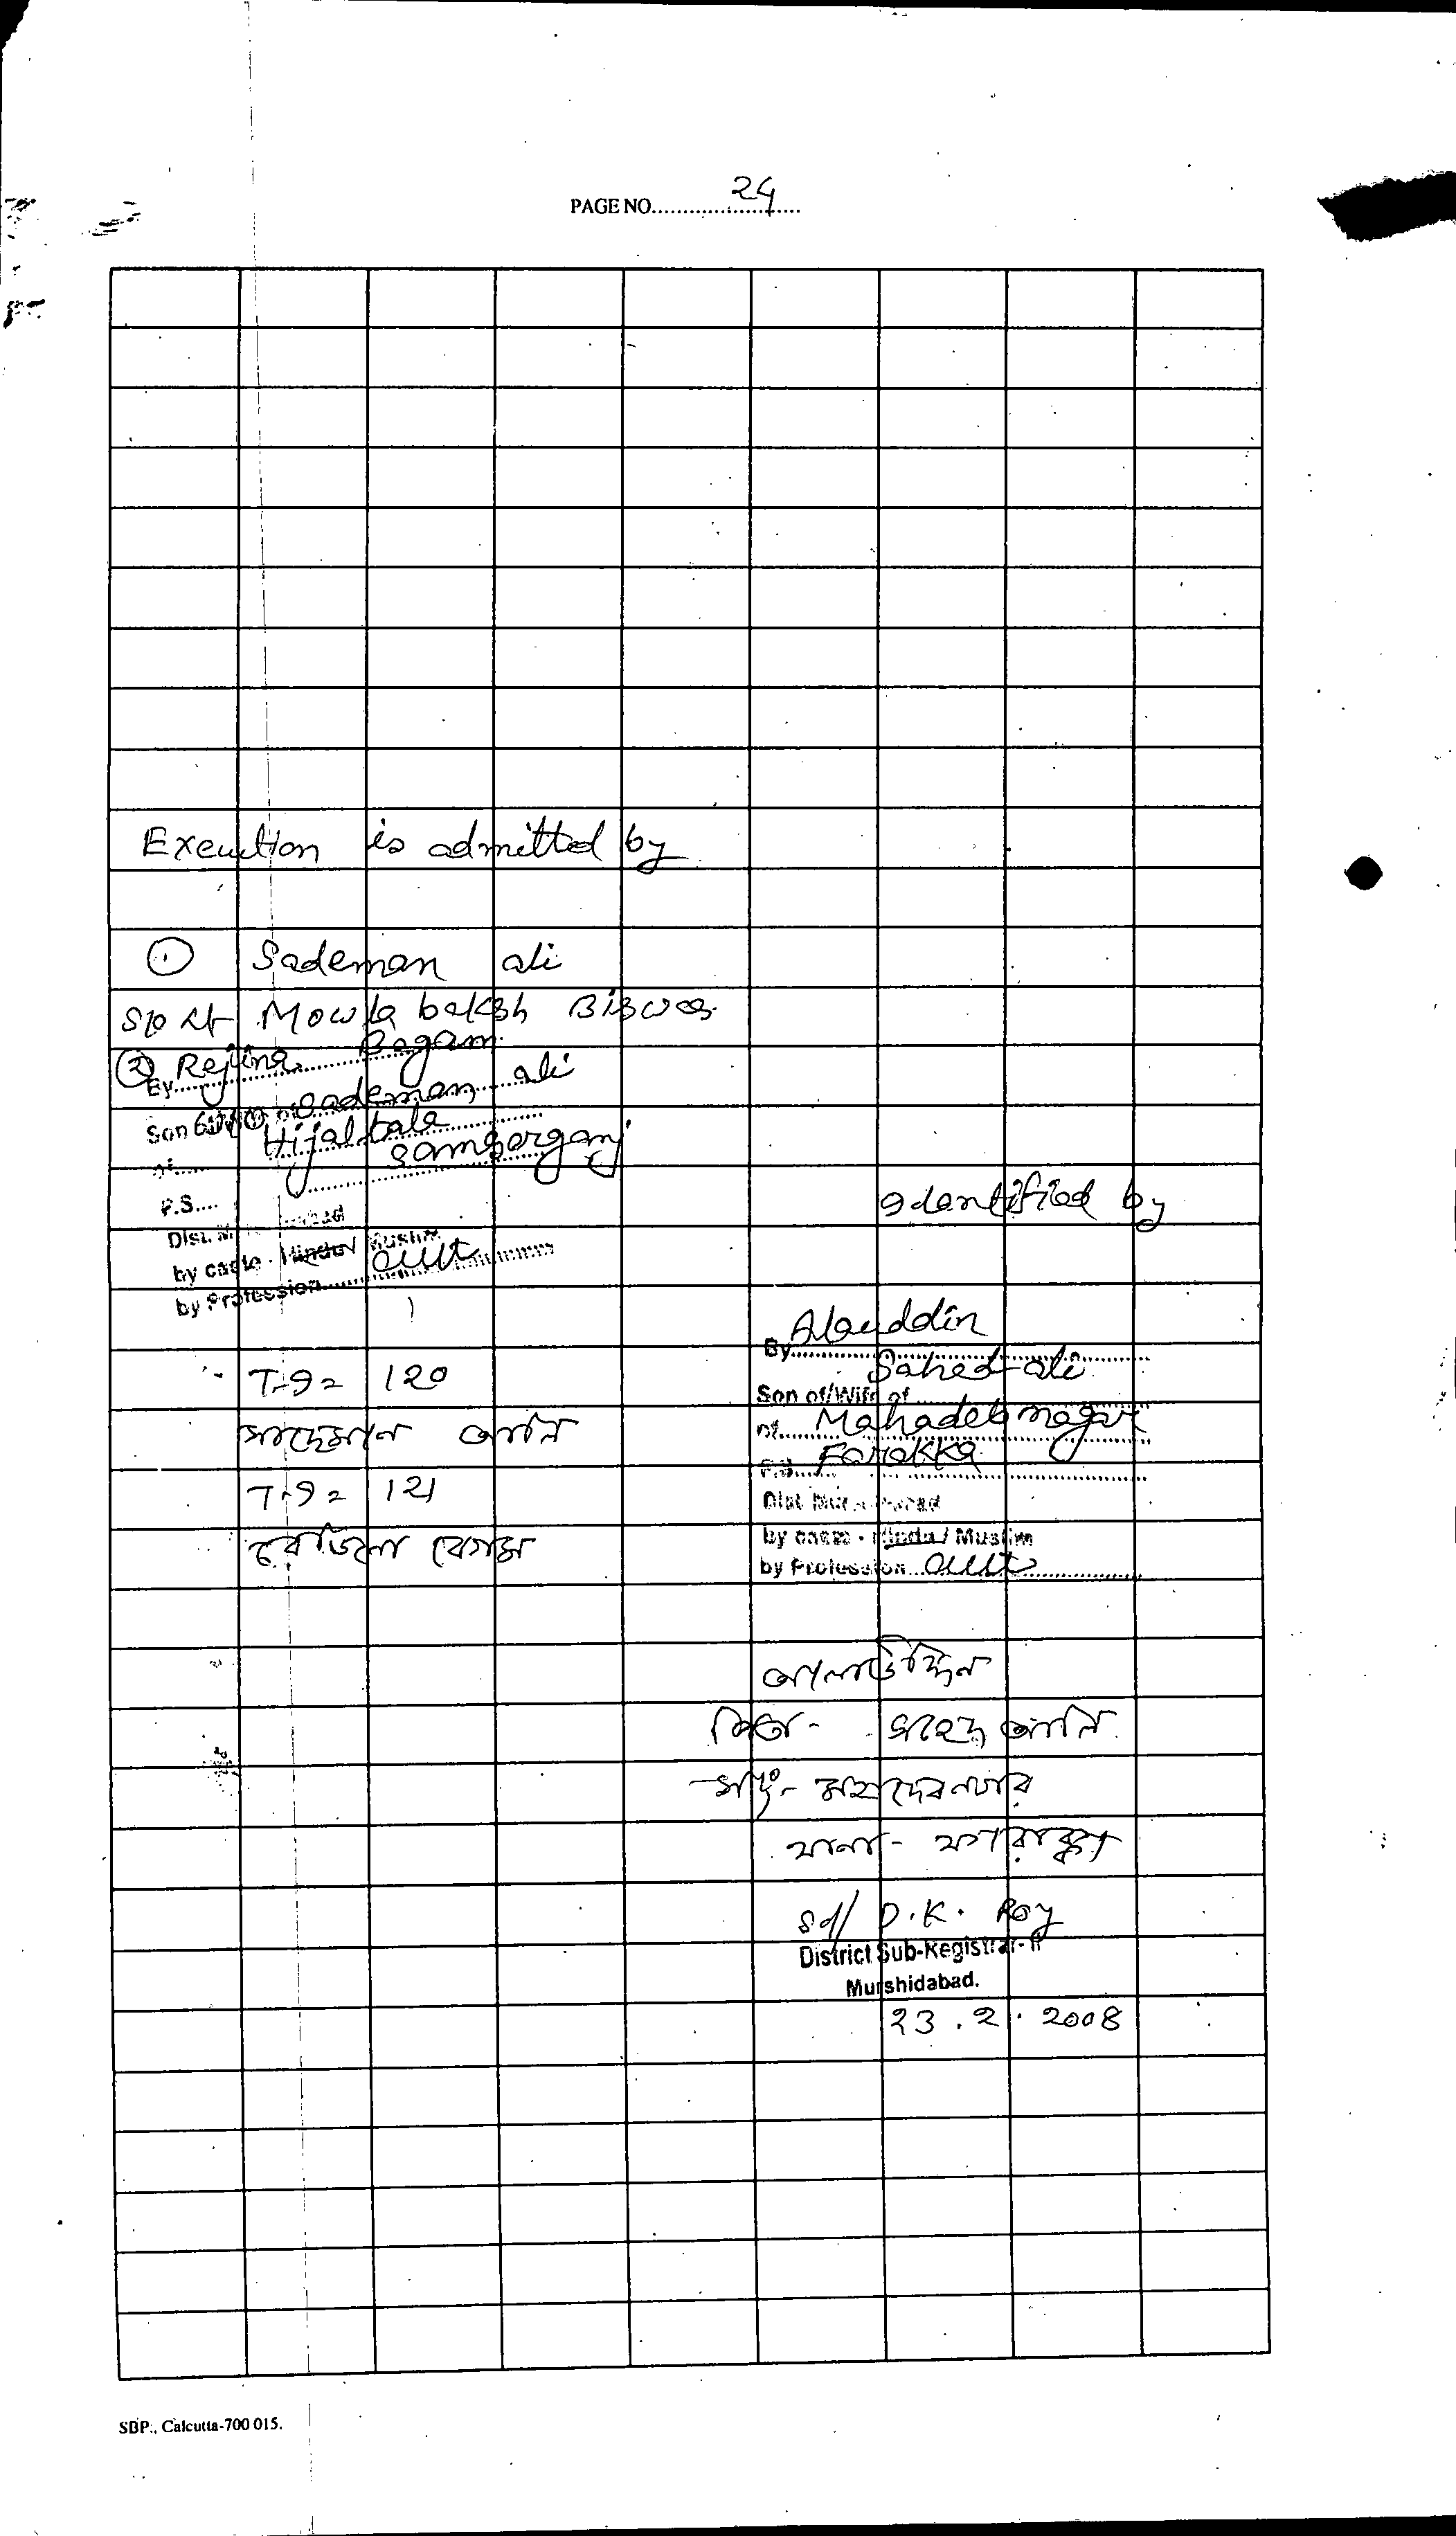 PAGE NO. 24
Execution is admitted by
① Sademan ali
S/o Lt Mowla baksh Biswas
② Rejina Begam
By
Son of/Wife of ① Sademan ali
of Hijaltala
P.S. Samserganj
Dist. Murshidabad
by caste - Hindu / Muslim
by Profession cult
T.I = 120
সাদেমান আলি
T.I = 121
রেজিনা বেগম
Identified by
By Alauddin
Son of/Wife of Sahed ali
of Mahadebnagar
P.S. Farakka
Dist. Murshidabad
by caste - Hindu / Muslim
by Profession cult
আলাউদ্দিন
পিতা - সাহেদ আলি
সাং - মহাদেবনগর
থানা - ফারাক্কা
Sd/ D.K. Roy
District Sub-Registrar-II
Murshidabad.
23.2.2008
SBP., Calcutta-700 015.